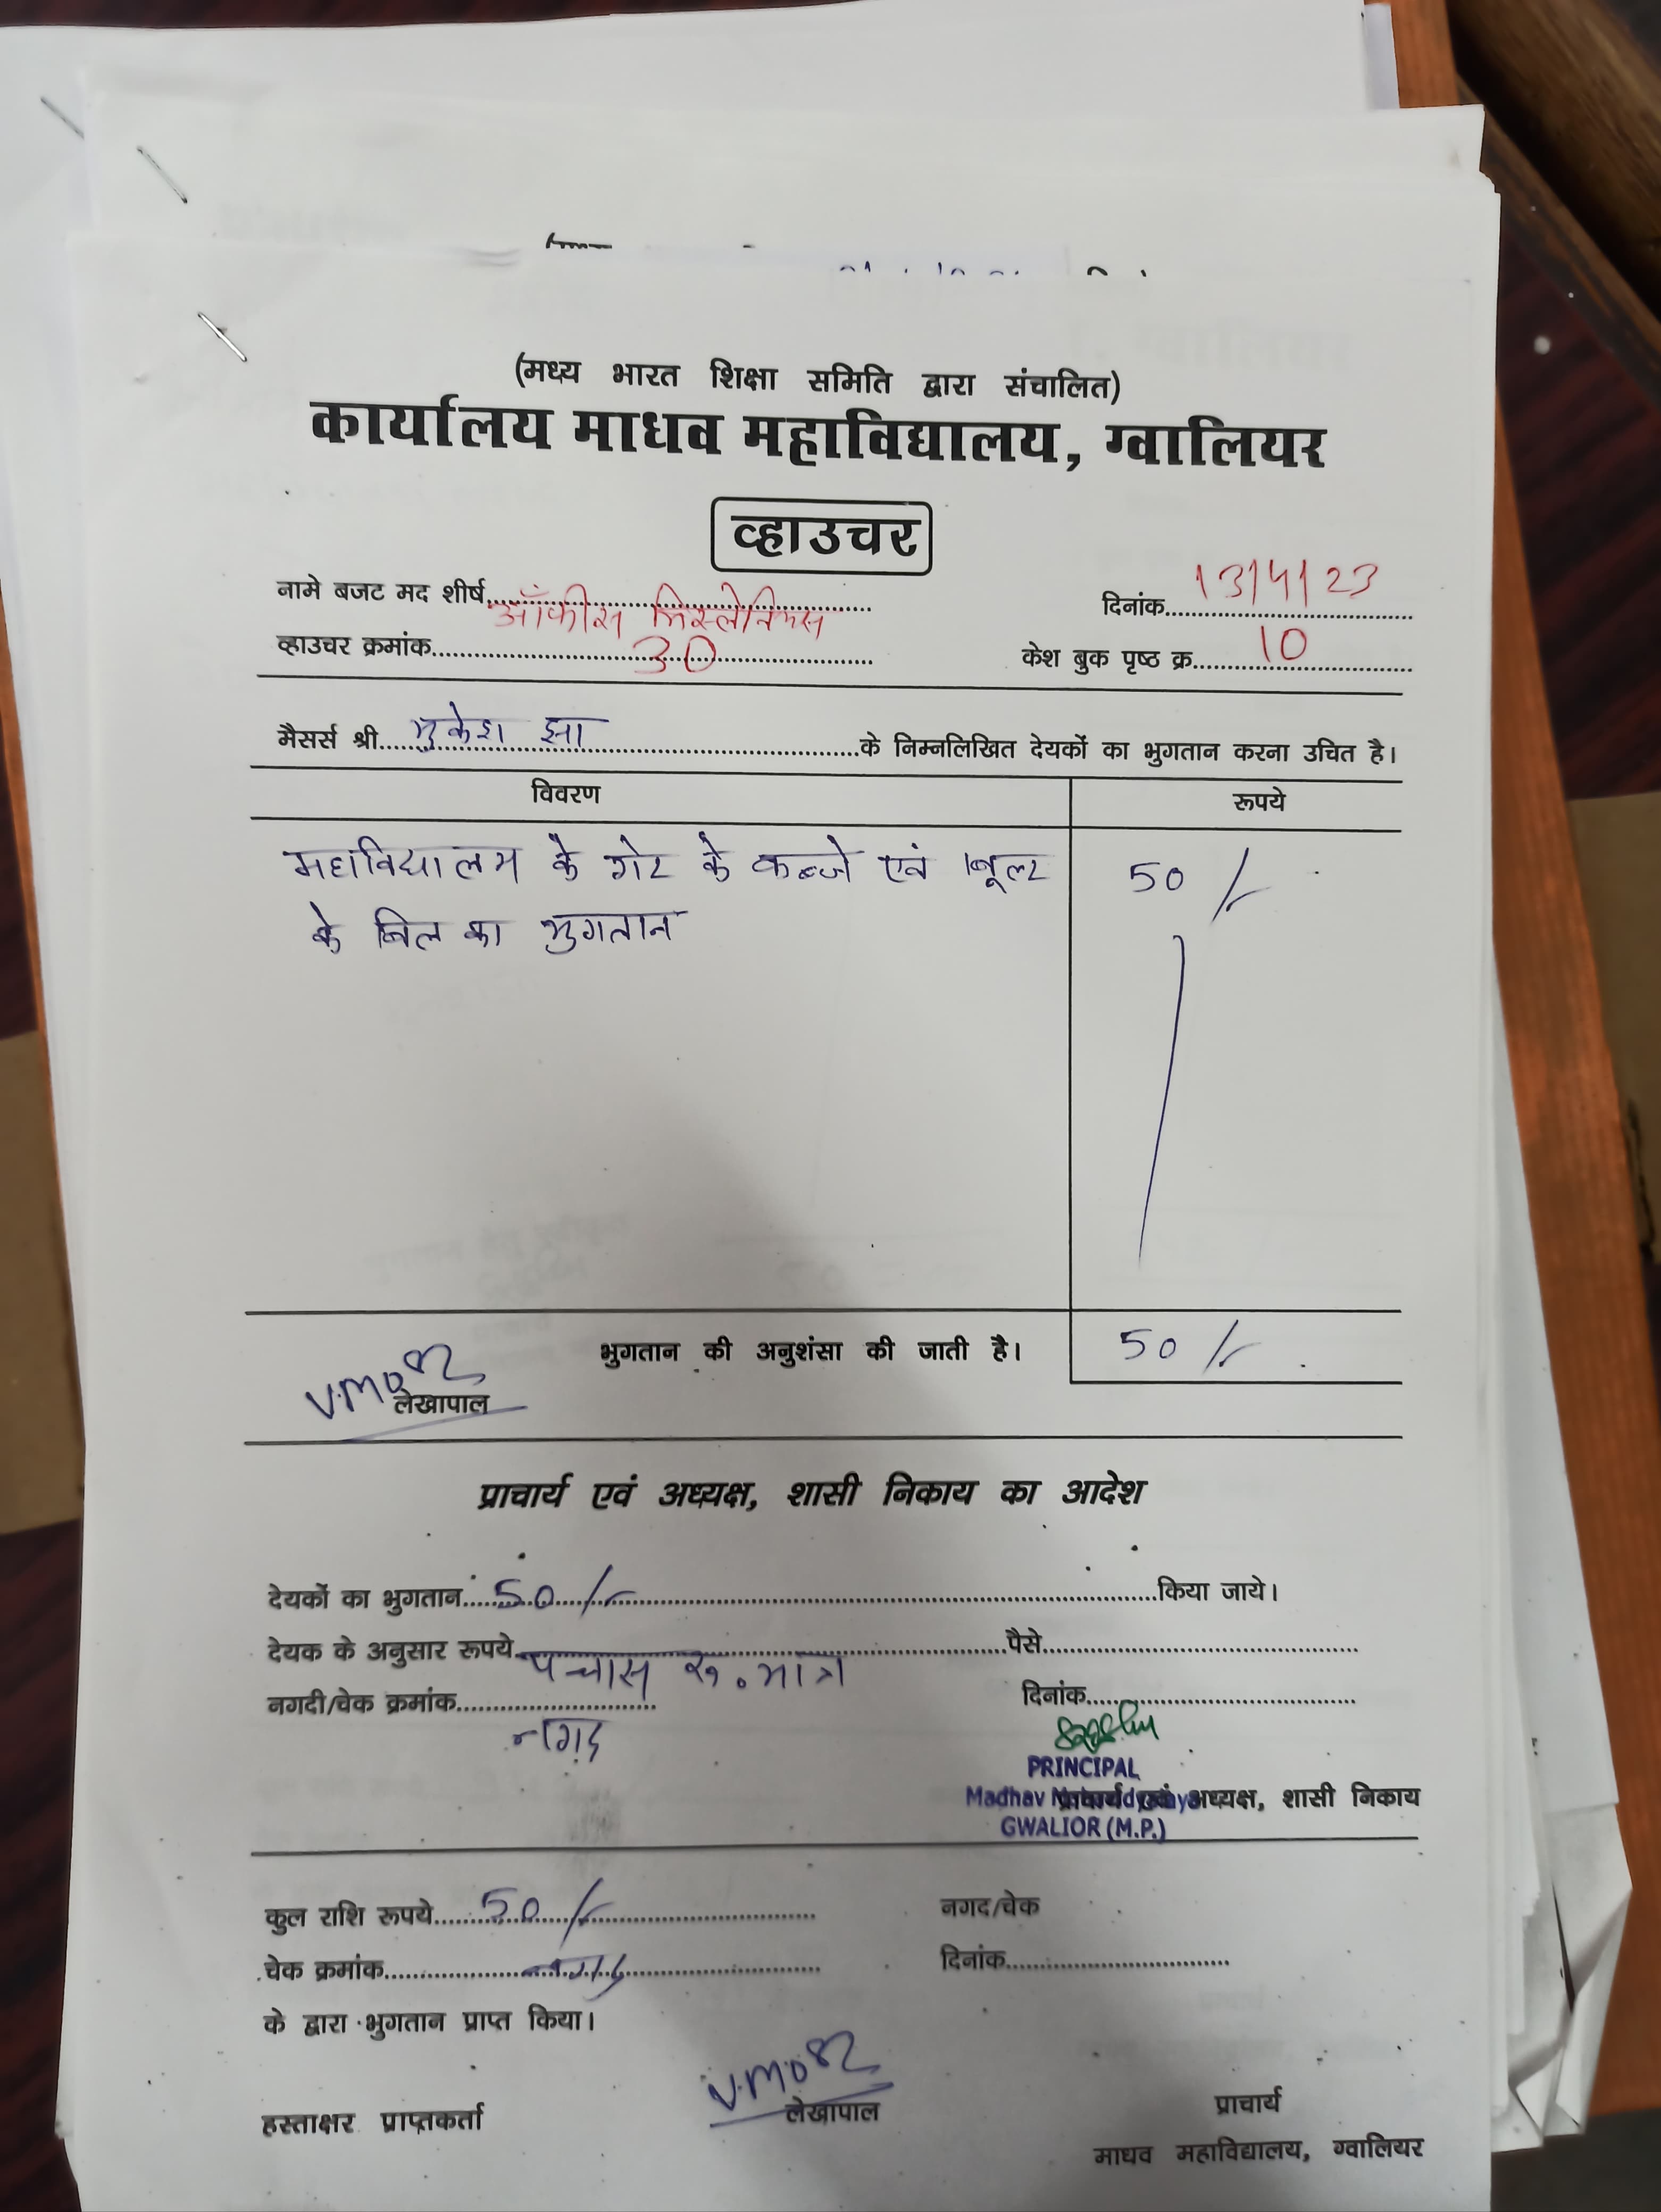 (मध्य भारत शिक्षा समिति द्वारा संचालित)
कार्यालय माधव महाविद्यालय, ग्वालियर
व्हाउचर
नामे बजट मद शीर्ष ऑफीस मिस्लेनियस दिनांक 13/4/23
व्हाउचर क्रमांक 30 केश बुक पृष्ठ क्र. 10
मैसर्स श्री मुकेश झा के निम्नलिखित देयकों का भुगतान करना उचित है।
विवरण रूपये
महाविद्यालय के गेट के कब्जे एवं 50/-
के बिल का भुगतान
भुगतान की अनुशंसा की जाती है। 50/-
लेखापाल
प्राचार्य एवं अध्यक्ष, शासी निकाय का आदेश
देयकों का भुगतान 50/- किया जाये।
देयक के अनुसार रूपये पचास रु. मात्र पैसे
नगदी/चेक क्रमांक नगद दिनांक
PRINCIPAL
Madhav Mahavidyalaya
प्राचार्य एवं अध्यक्ष, शासी निकाय
GWALIOR (M.P.)
कुल राशि रूपये 50/- नगद/चेक
चेक क्रमांक नगद दिनांक
के द्वारा भुगतान प्राप्त किया।
हस्ताक्षर प्राप्तकर्ता लेखापाल प्राचार्य
माधव महाविद्यालय, ग्वालियर